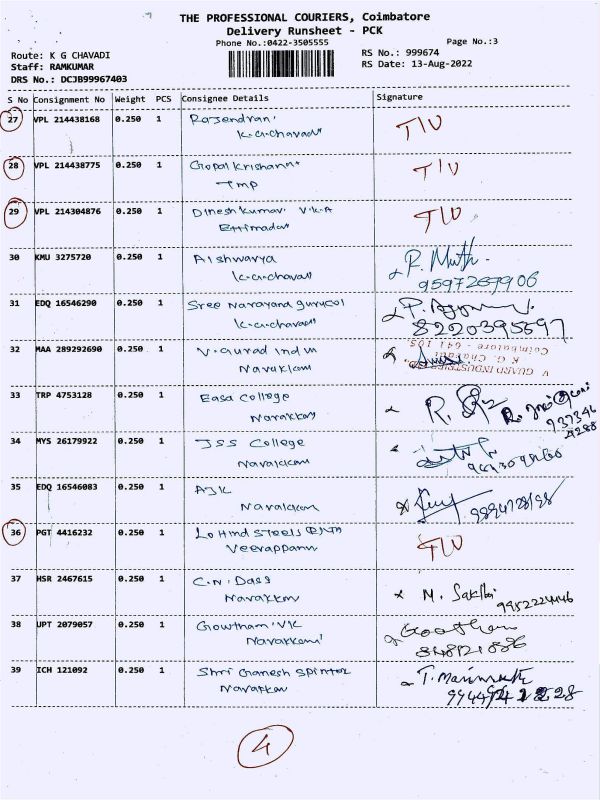 THE PROFESSIONAL COURIERS, Coimbatore
Delivery Runsheet - PCK
Phone No.:0422-3505555 Page No.:3
Route: K G CHAVADI RS No.: 999674
Staff: RAMKUMAR RS Date: 13-Aug-2022
DRS No.: DCJB99967403
S No Consignment No Weight PCS Consignee Details Signature
27 VPL 214438168 0.250 1 Rajendran
K.G.Chavadi
28 VPL 214438775 0.250 1 Gopal Krishann
Tmp
29 VPL 214304876 0.250 1 Dinesh Kumar V.K.A
Ettimadai
30 KMU 3275720 0.250 1 Aishwarya R. Muth
K.G.Chavadi 9597267906
31 EDQ 16546290 0.250 1 Sree Narayana gurucol
K.G.Chavadi 8220395697
32 MAA 289292690 0.250 1 V.Gaurad V GUARD INDUSTRIES
K. G. Chavadi
Coimbatore - 641 105.
33 TRP 4753128 0.250 1 Easa College
Navakkam
34 MYS 26179922 0.250 1 JSS College
Navakkam
35 EDQ 16546083 0.250 1 AJK
Navakkam
36 PGT 4416232 0.250 1 Steels
Veerappann
37 HSR 2467615 0.250 1 C.N. Dass
Navakkam 9952224446
38 UPT 2079057 0.250 1 Gowtham VK
Navakkam
39 ICH 121092 0.250 1 Shri Ganesh Spintex
Navakkam
4